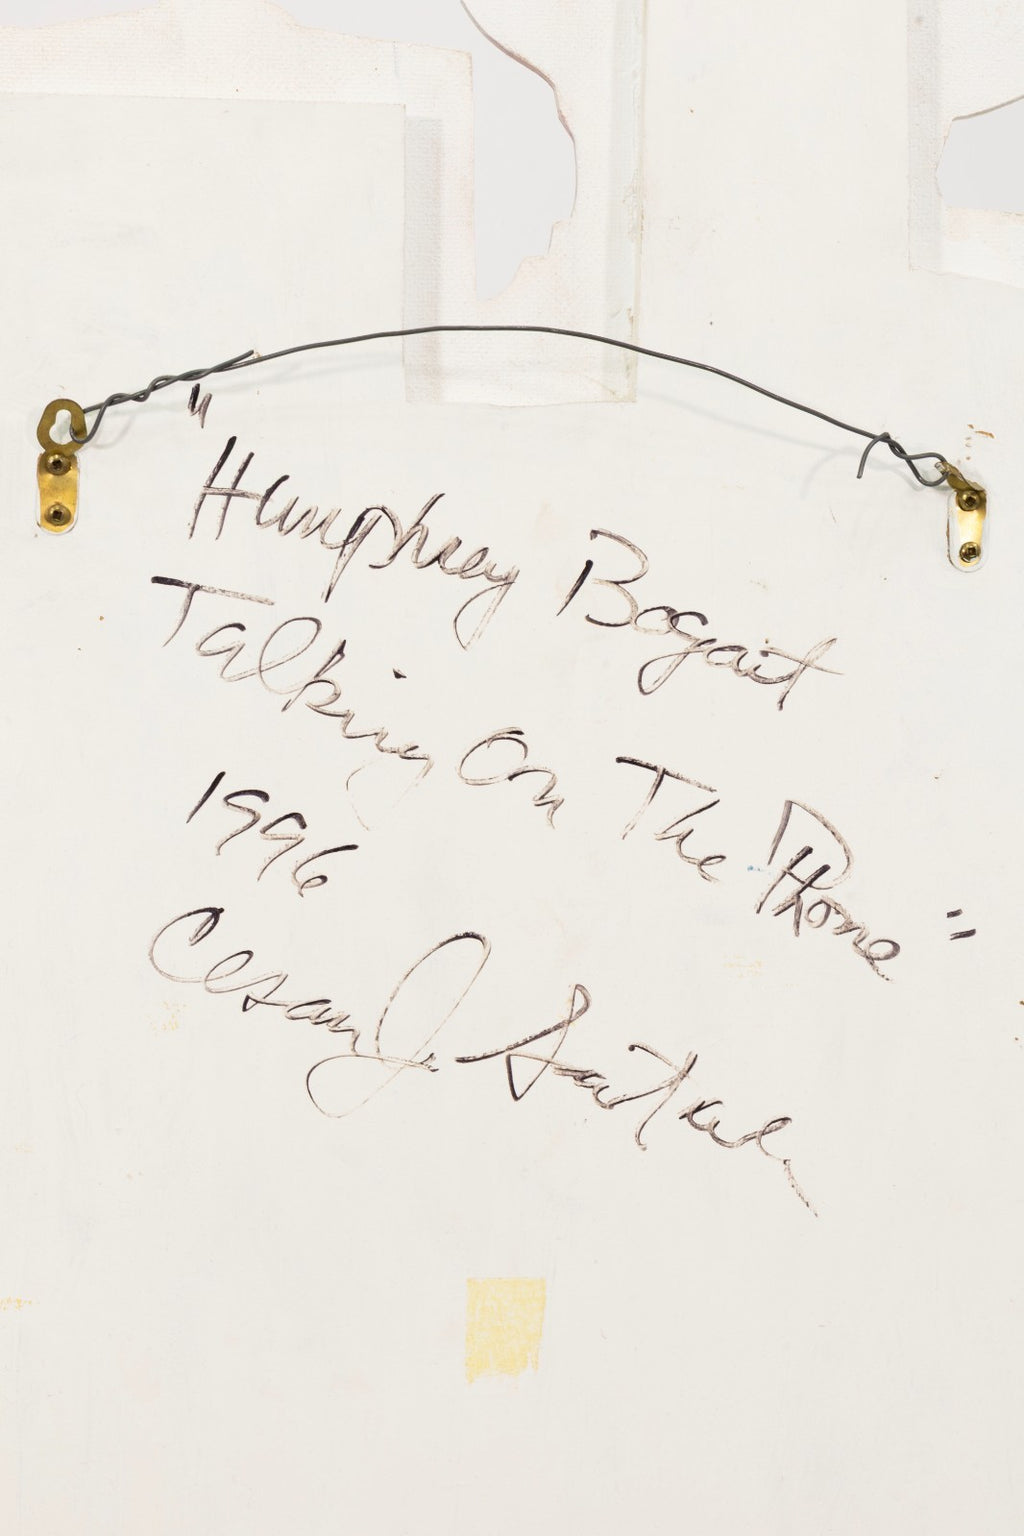 "Humphrey Bogart
Talking On The Phone"
1996
Cesar J. Santander